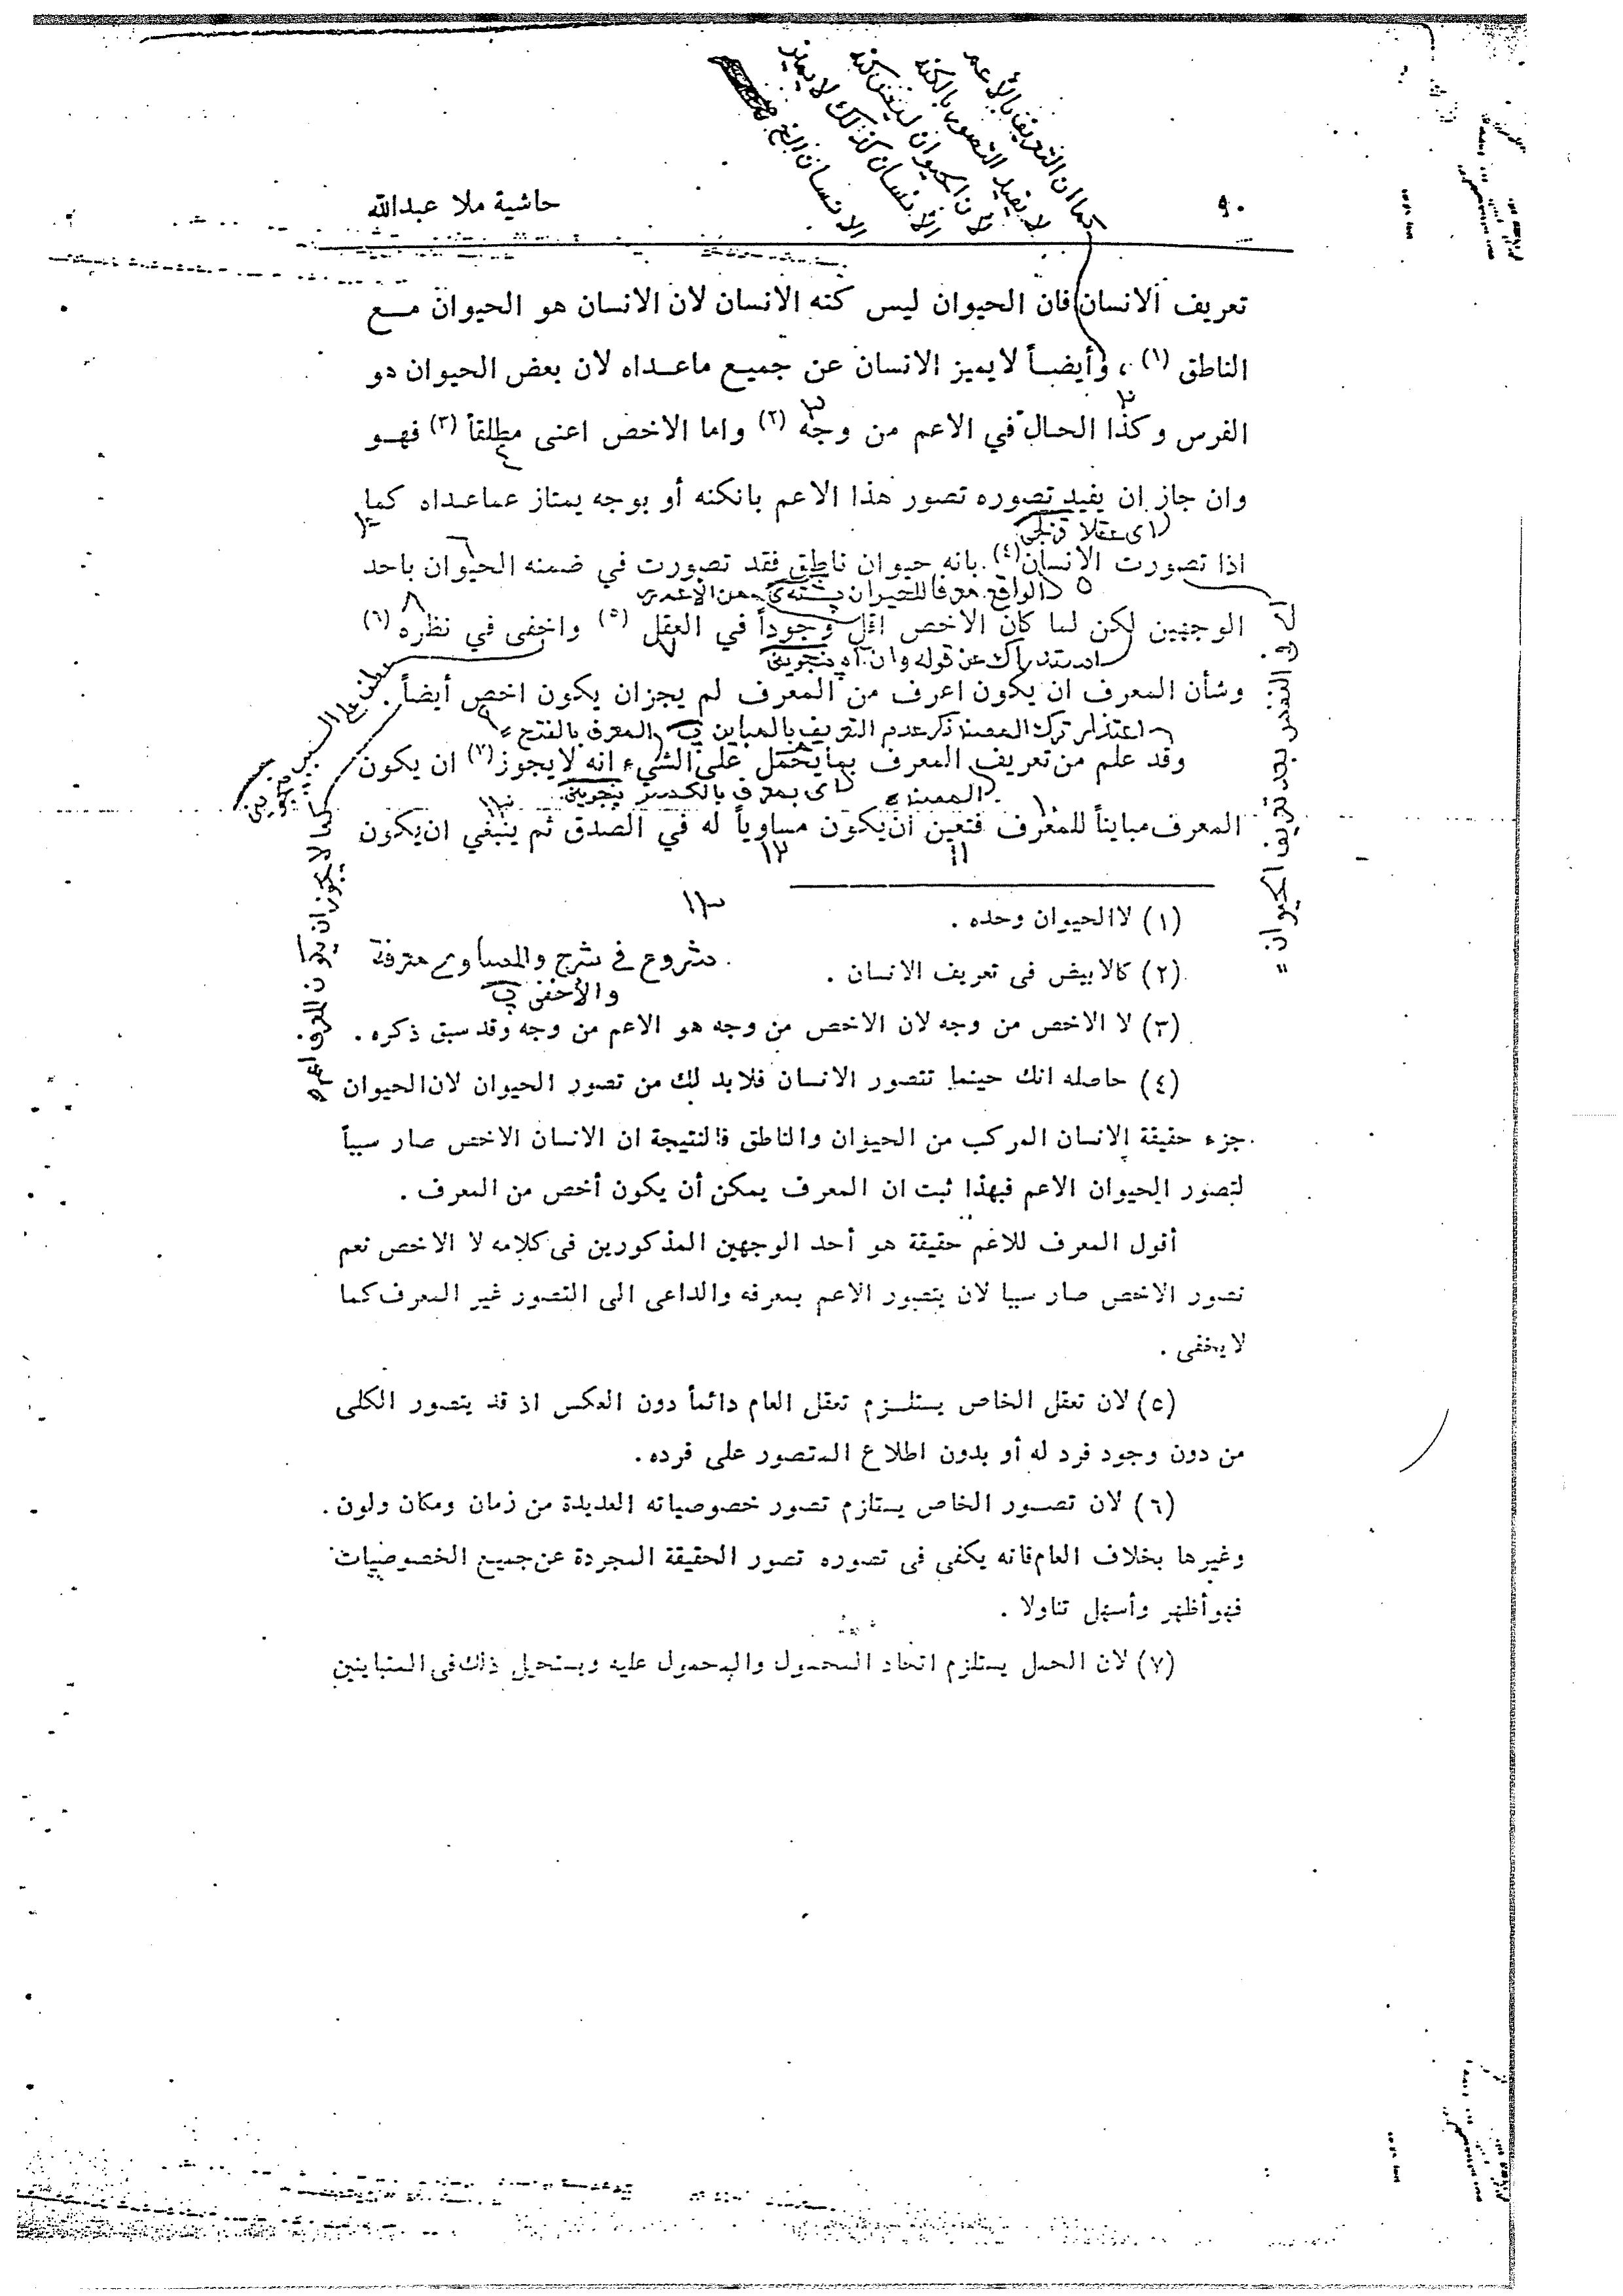 ٩٠
حاشية ملا عبدالله
كما ان التعريف بالأعم
لا يفيد التصور بالكنه
لان الحيوان ليس كنه
الانسان كذلك لا يميز
الانسان
تعريف الانسان فان الحيوان ليس كنه الانسان لان الانسان هو الحيوان مـع
الناطق (١) ، وأيضـاً لايميز الانسان عن جميـع ماعـداه لان بعض الحيوان هو
الفرس وكذا الحال في الاعم من وجه (٢) واما الاخص اعنى مطلقاً (٣) فهـو
وان جاز ان يفيد تصوره تصور هذا الاعم بالكنه أو بوجه يمتاز عماعداه كما
اى عقلا
اذا تصورت الانسان (٤) بانه حيوان ناطق فقد تصورت في ضمنه الحيوان باحد
الوجهين لكن لما كان الاخص اقل وجوداً في العقل (٥) واخفى في نظره (٦)
استدراك عن قوله وان
وشأن المعرف ان يكون اعرف من المعرف لم يجزان يكون اخص أيضاً .
اعتذار ترك المصنف ذكر عدم التعريف بالمباين
المعرف بالفتح
وقد علم من تعريف المعرف بمايحمل على الشيء انه لايجوز (٧) ان يكون
المصنف
اى بمعرف بالكسر
المعرف مبايناً للمعرف فتعين ان يكون مساوياً له في الصدق ثم ينبغي ان يكون
كما لا يجوز ان يكون المعرف اعم
فى النفس بعد تعريف الحيوان
(١) لاالحيوان وحده .
شروع فى شرح والمساوى معرفة
والأخفى
(٢) كالابيض فى تعريف الانسان .
(٣) لا الاخص من وجه لان الاخص من وجه هو الاعم من وجه وقد سبق ذكره .
(٤) حاصله انك حينما تتصور الانسان فلابد لك من تصور الحيوان لان الحيوان
جزء حقيقة الانسان المركب من الحيوان والناطق فالنتيجة ان الانسان الاخص صار سبباً
لتصور الحيوان الاعم فبهذا ثبت ان المعرف يمكن أن يكون أخص من المعرف .
أقول المعرف للاعم حقيقة هو أحد الوجهين المذكورين فى كلامه لا الاخص نعم
تصور الاخص صار سببا لان يتصور الاعم بمعرفه والداعى الى التصور غير المعرف كما
لا يخفى .
(٥) لان تعقل الخاص يستلـزم تعقل العام دائماً دون العكس اذ قد يتصور الكلى
من دون وجود فرد له أو بدون اطلاع المتصور على فرده .
(٦) لان تصـور الخاص يستلزم تصور خصوصياته العديدة من زمان ومكان ولون .
وغيرها بخلاف العام فانه يكفى فى تصوره تصور الحقيقة المجردة عن جميع الخصوصيات
فهو أظهر وأسهل تناولا .
(٧) لان الحمل يستلزم اتحاد المحمول والمحمول عليه ويستحيل ذلك فى المتباينين